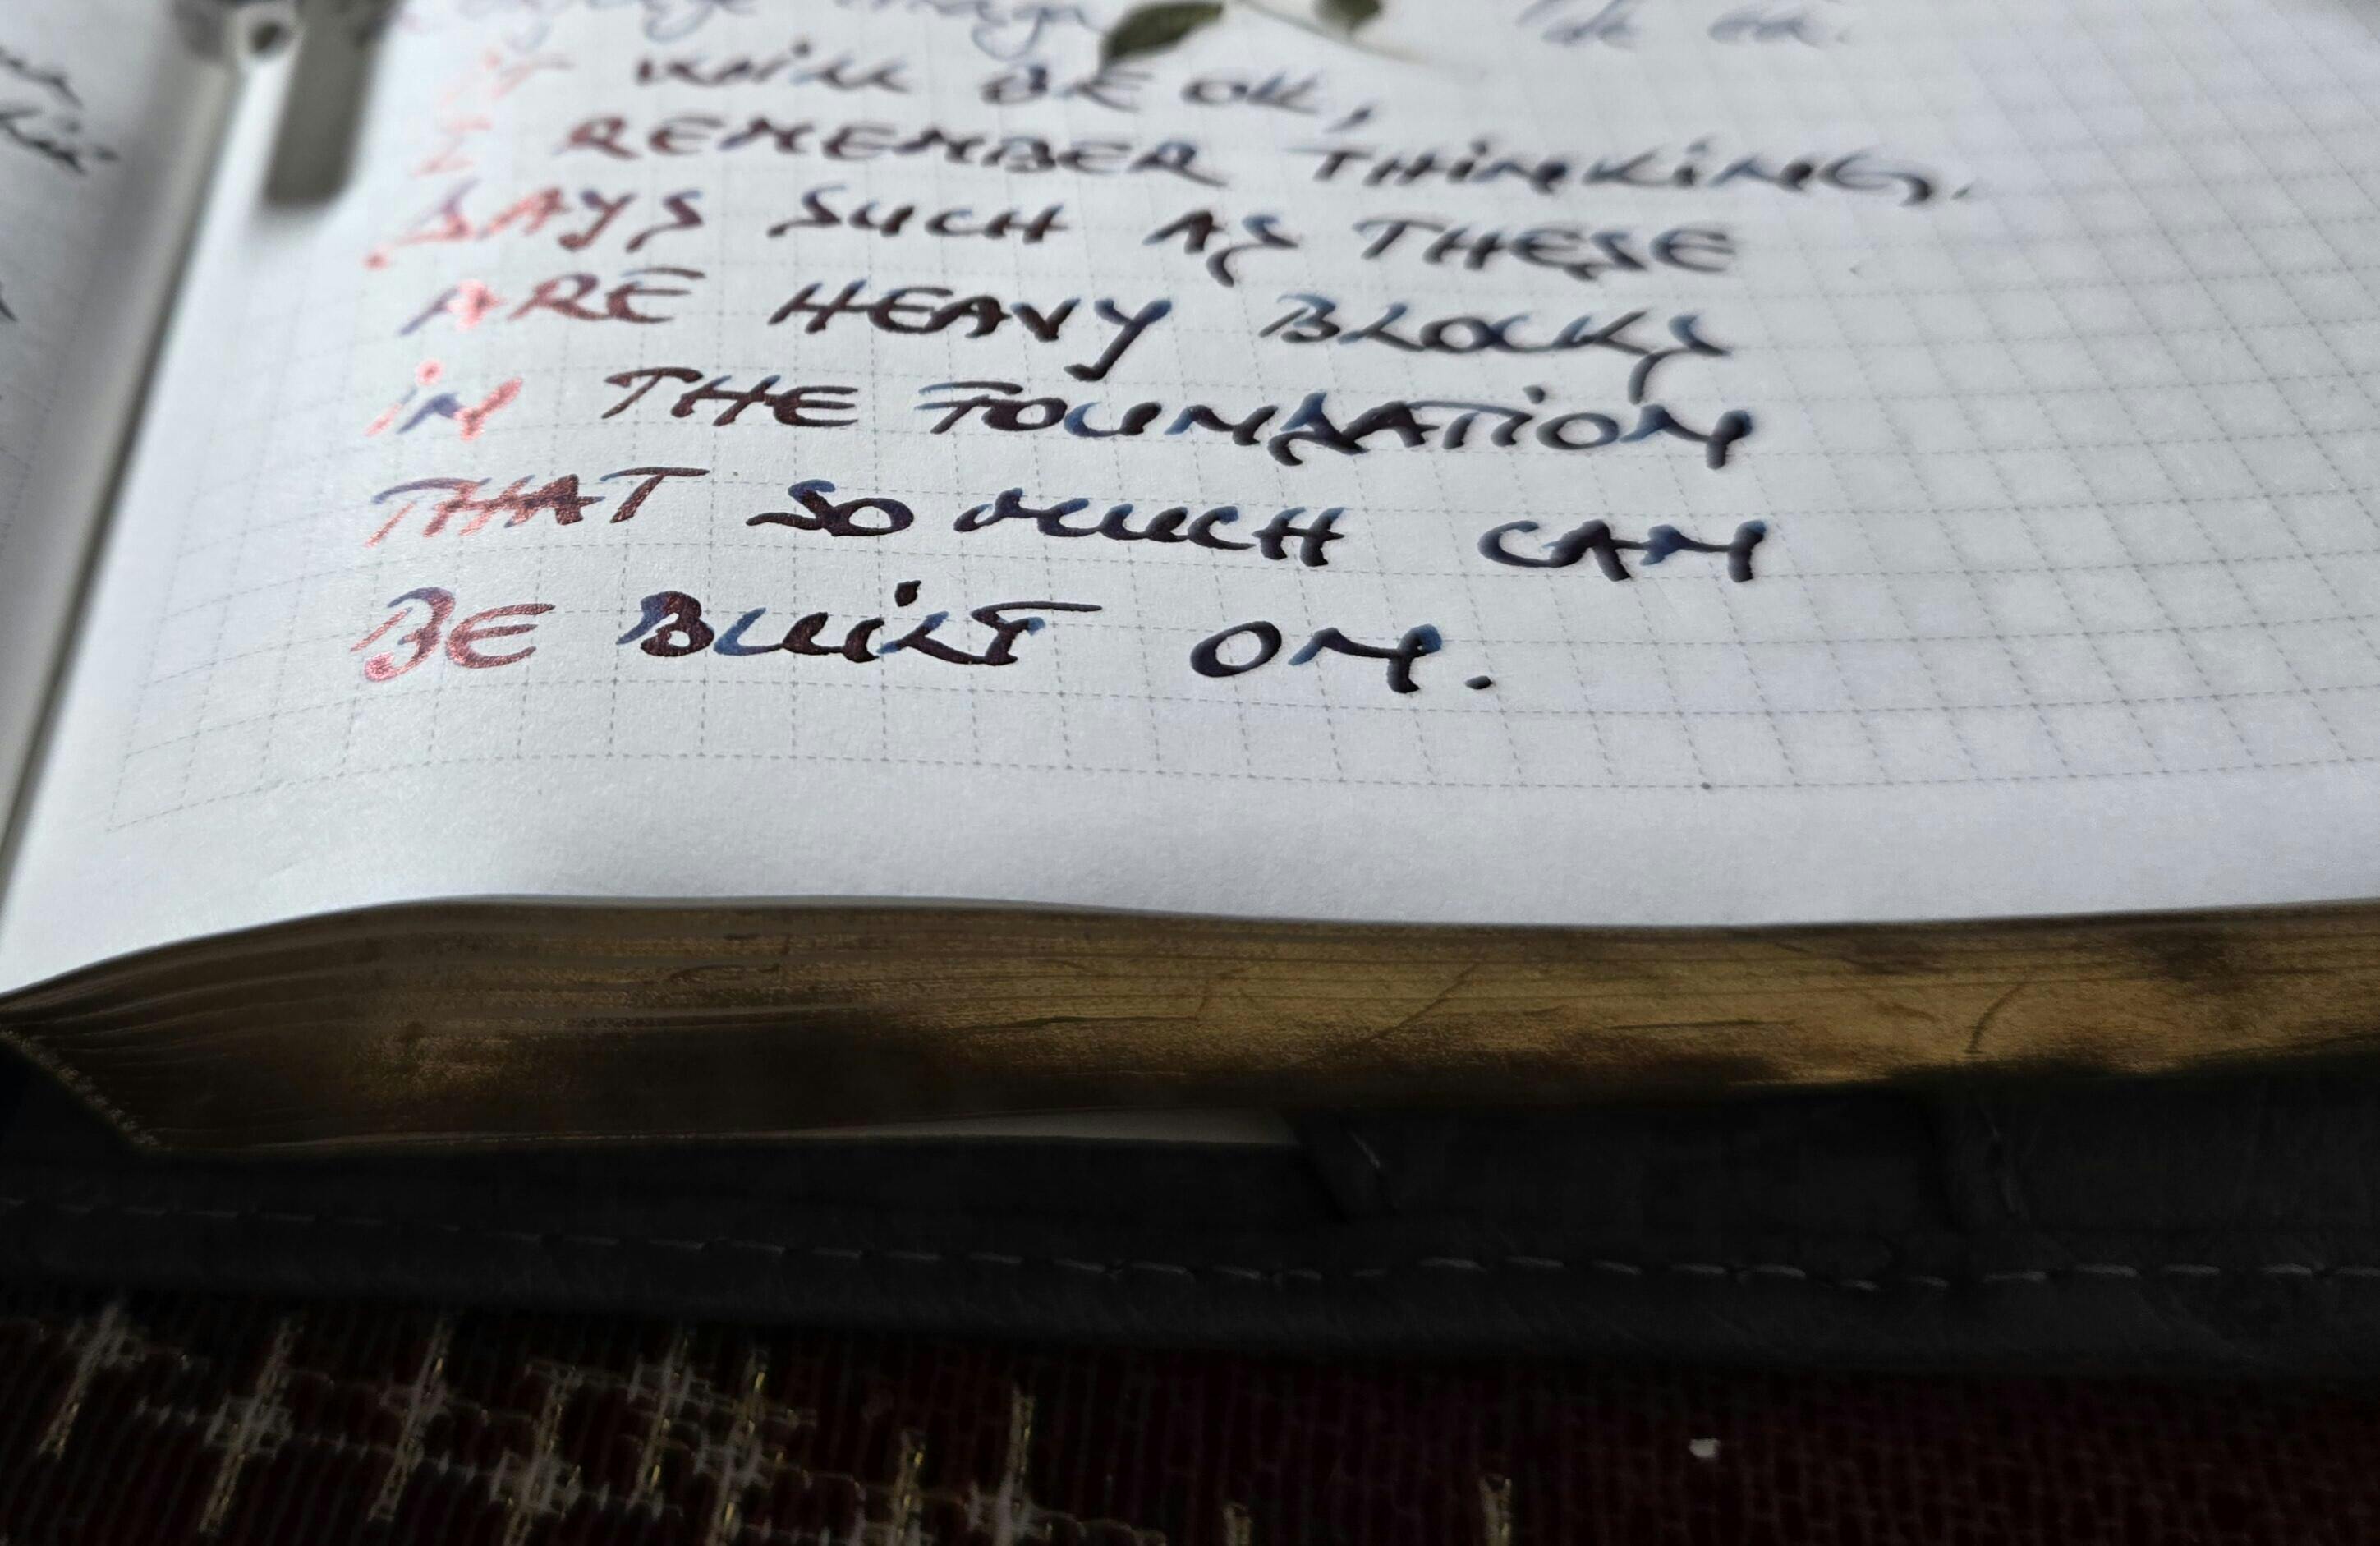 IT WiLL BE OK,
I REMEMBER THiNKiNG.
DAYS SUCH AS THESE
ARE HEAVY BLOCKS
iN THE FOUNDATiON
THAT SO MUCH CAN
BE BUiLT ON.